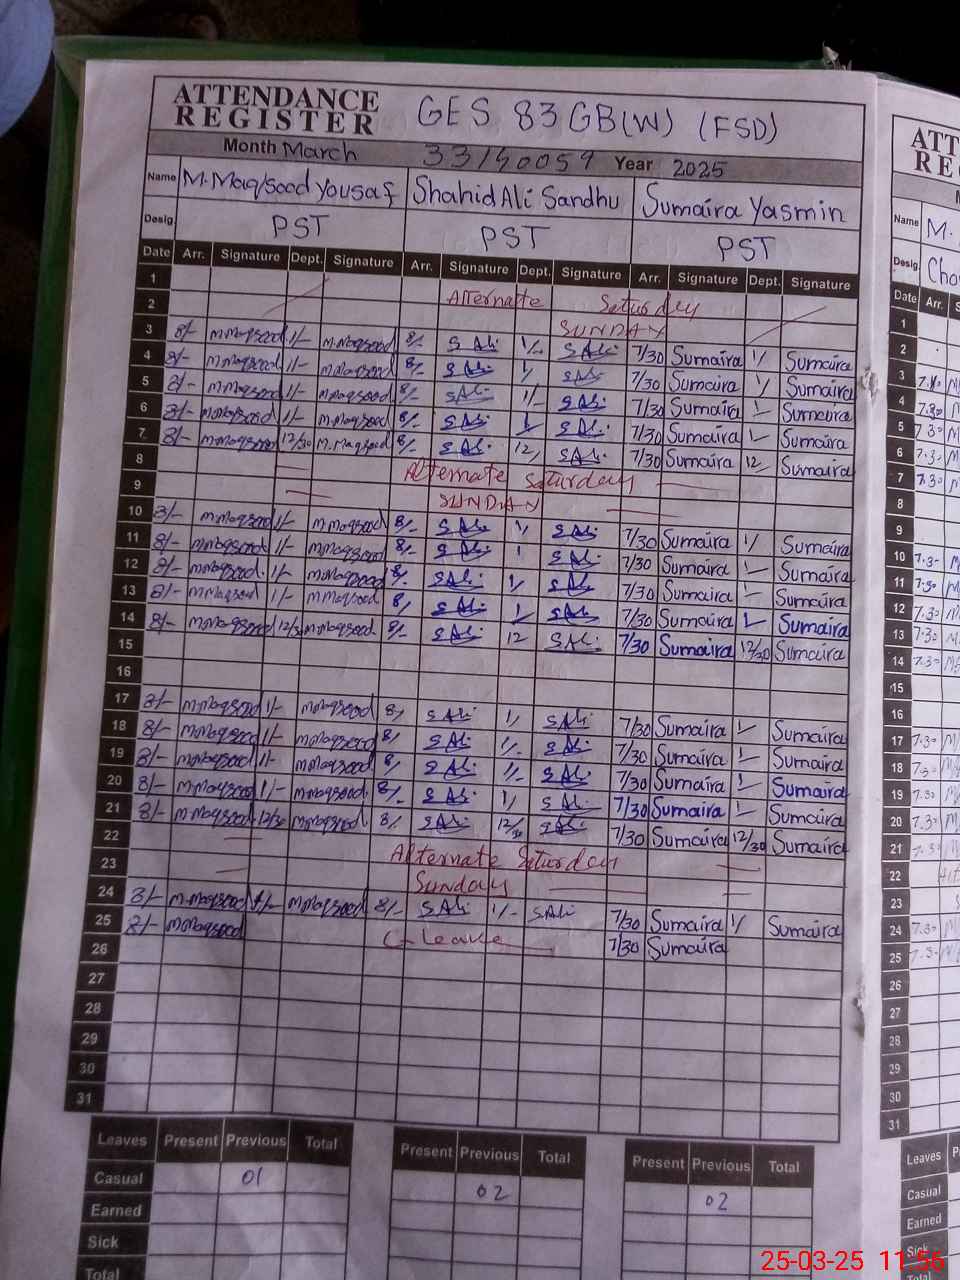 ATTENDANCE REGISTER GES 83 GB(W) (FSD)
Month March 33140059 Year 2025
Name M.Maqsood Yousaf Shahid Ali Sandhu Sumaira Yasmin
Desig. PST PST PST
Date Arr. Signature Dept. Signature Arr. Signature Dept. Signature Arr. Signature Dept. Signature
1 Alternate Saturday
2 SUNDAY
3 8/- M.Maqsood 1/- M.Maqsood 8/- S Ali 1/- S Ali 7/30 Sumaira 1/ Sumaira
4 8/- M.Maqsood 1/- M.Maqsood 8/- S Ali 1/ S Ali 7/30 Sumaira 1/ Sumaira
5 8/- M.Maqsood 1/- M.Maqsood 8/- S Ali 1/- S Ali 7/30 Sumaira 1/- Sumaira
6 8/- M.Maqsood 1/- M.Maqsood 8/- S Ali 1/ S Ali 7/30 Sumaira 1/- Sumaira
7 8/- M.Maqsood 12/30 M.Maqsood 8/- S Ali 12/ S Ali 7/30 Sumaira 12/ Sumaira
8 Alternate Saturday
9 SUNDAY
10 8/- M.Maqsood 1/- M.Maqsood 8/- S Ali 1/ S Ali 7/30 Sumaira 1/ Sumaira
11 8/- M.Maqsood 1/- M.Maqsood 8/- S Ali 1 S Ali 7/30 Sumaira 1/- Sumaira
12 8/- M.Maqsood 1/- M.Maqsood 8/- S Ali 1/ S Ali 7/30 Sumaira 1/- Sumaira
13 8/- M.Maqsood 1/- M.Maqsood 8/ S Ali 1/ S Ali 7/30 Sumaira 1/- Sumaira
14 8/- M.Maqsood 12/30 M.Maqsood 8/- S Ali 12 S Ali 7/30 Sumaira 12/30 Sumaira
15
16
17 8/- M.Maqsood 1/- M.Maqsood 8/ S Ali 1/ S Ali 7/30 Sumaira 1/- Sumaira
18 8/- M.Maqsood 1/- M.Maqsood 8/ S Ali 1/- S Ali 7/30 Sumaira 1/- Sumaira
19 8/- M.Maqsood 1/- M.Maqsood 8/ S Ali 1/- S Ali 7/30 Sumaira 1/- Sumaira
20 8/- M.Maqsood 1/- M.Maqsood 8/- S Ali 1/ S Ali 7/30 Sumaira 1/- Sumaira
21 8/- M.Maqsood 12/30 M.Maqsood 8/- S Ali 12/30 S Ali 7/30 Sumaira 12/30 Sumaira
22 Alternate Saturday
23 Sunday
24 8/- M.Maqsood 1/- M.Maqsood 8/- S Ali 1/- S Ali 7/30 Sumaira 1/ Sumaira
25 8/- M.Maqsood C-Leave 7/30 Sumaira
26
27
28
29
30
31
Leaves Present Previous Total Present Previous Total Present Previous Total
Casual 01 02 02
Earned
Sick
Total
Name M.
Desig.
Date Arr.
1
2
3
4
5
6
7
8
9
10
11
12
13
14
15
16
17
18
19
20
21
22
23
24
25
26
27
28
29
30
31
Leaves
Casual
Earned
Sick
25-03-25 11:56